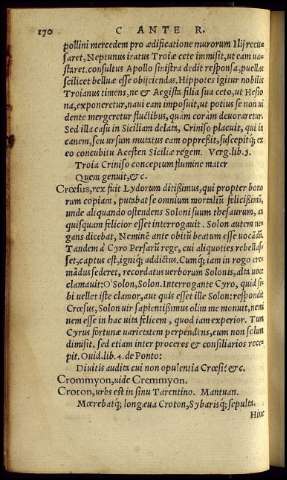 170 C ANTE R.
pollini mercedem pro ædificatione murorum Ilij recu
saret, Neptunus iratus Troiæ cete immisit, ut eam ua-
staret. consultus Apollo sinistra dedit responsa, puellas
scilicet belluæ esse obijciendas, Hippotes igitur nobilis
Troianus timens, ne & Aegista filia sua ceto, ut Hesio
na, exponeretur, naui eam imposuit, ut potius se non ui
dente mergeretur fluctibus, quam coràm deuoraretur.
Sed illa casu in Siciliam delata, Criniso placuit, qui in
canem, seu ursum mutatus eam oppressit, suscepitq́; ex
eo concubitu Acesten Siciliæ regem. Verg. lib. 5.
Troia Criniso conceptum flumine mater
Quem genuit, &c.
Crœsus, rex fuit Lydorum ditißimus, qui propter bono
rum copiam, putabat se omnium mortaliū felicißimū,
unde aliquando ostendens Soloni suum thesaurum, an
quisquam felicior esset interrogauit. Solon autem ne-
gans dicebat, Neminē ante obitū beatum esse uocādū
Tandem à Cyro Persarū rege, cui aliquoties rebellas
set, captus est, igniq́; addictus. Cumq́; iam in rogo cre-
mādus sederet, recordatus uerborum Solonis, alta uoce
clamauit: O' Solon, Solon. Interrogante Cyro, quid si-
bi uellet iste clamor, aut quis esset ille Solon: respondit
Crœsus, Solon uir sapientißimus olim me monuit, nemi
nem esse in hac uita felicem, quod iam experior. Tum
Cyrus fortunæ uarietatem perpendens, eum non solum
dimisit, sed etiam inter proceres & consiliarios rece-
pit. Ouid. lib. 4. de Ponto:
Diuitis audita cui non opulentia Crœsi? &c.
Crommyon, uide Cremmyon.
Croton, urbs est in sinu Tarentino. Mantuan.
Mœrebatq́; longæua Croton, Sybarisq́; sepulta.
Hinc